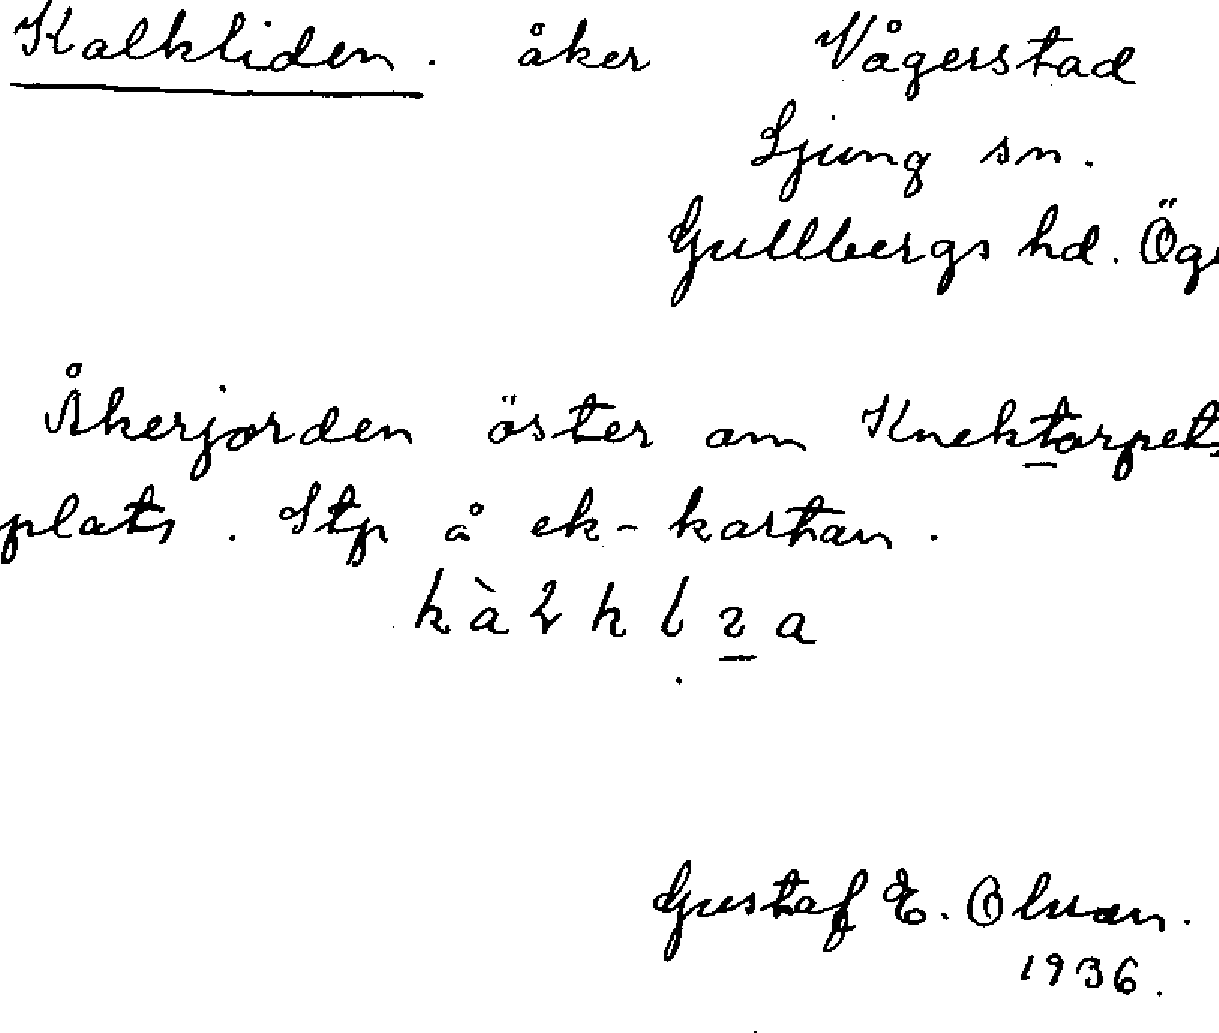 Kalkliden. åker Vågerstad
Ljung sn.
Gullbergs hd. Ög
Åkerjorden öster om Knektorpets
plats. Stp å ek-kartan.
Gustaf E. Olsson.
1936.